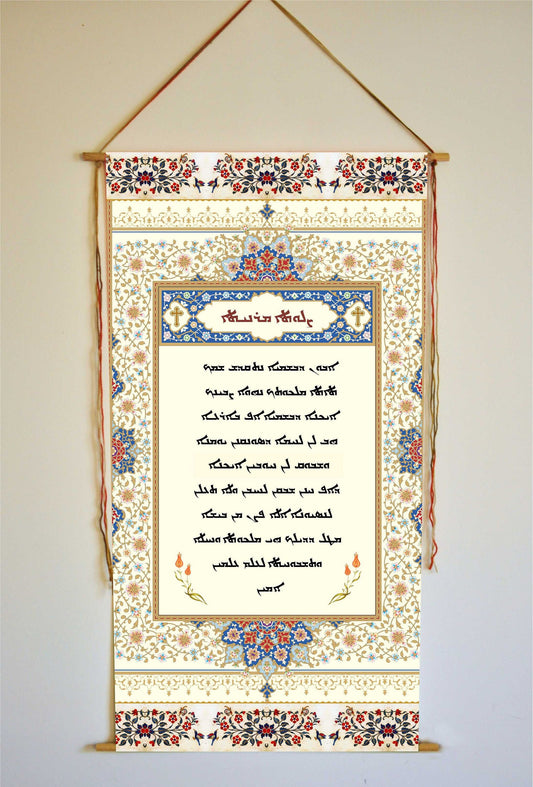 ܨܠܘܬܐ ܡܪܢܝܬܐ
ܐܒܘܢ ܕܒܫܡܝܐ ܢܬܩܕܫ ܫܡܟ
ܬܐܬܐ ܡܠܟܘܬܟ ܢܗܘܐ ܨܒܝܢܟ
ܐܝܟܢܐ ܕܒܫܡܝܐ ܐܦ ܒܐܪܥܐ
ܗܒ ܠܢ ܠܚܡܐ ܕܣܘܢܩܢܢ ܝܘܡܢܐ
ܘܫܒܘܩ ܠܢ ܚܘܒܝܢ ܐܝܟܢܐ
ܕܐܦ ܚܢܢ ܫܒܩܢ ܠܚܝܒܝܢ ܘܠܐ ܬܥܠܢ
ܠܢܣܝܘܢܐ ܐܠܐ ܦܨܢ ܡܢ ܒܝܫܐ
ܡܛܠ ܕܕܝܠܟ ܗܝ ܡܠܟܘܬܐ ܘܚܝܠܐ
ܘܬܫܒܘܚܬܐ ܠܥܠܡ ܥܠܡܝܢ
ܐܡܝܢ